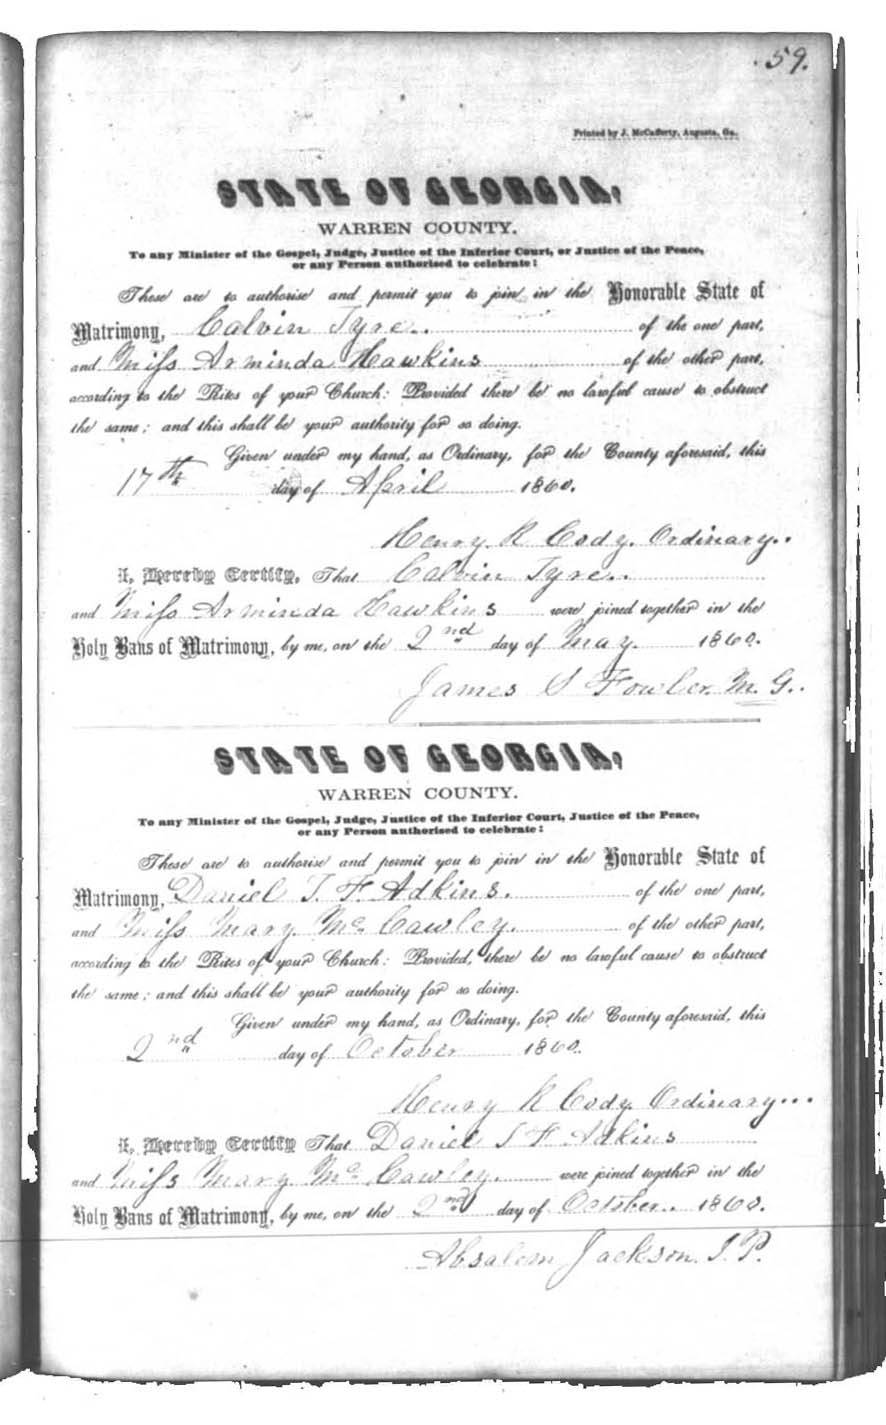 59.
Printed by J. McCafferty, Augusta, Ga.
STATE OF GEORGIA,
WARREN COUNTY.
To any Minister of the Gospel, Judge, Justice of the Inferior Court, or Justice of the Peace,
or any Person authorised to celebrate:
These are to authorise and permit you to join in the Honorable State of
Matrimony, Calvin Tyre.. of the one part,
and Miss Arminda Hawkins of the other part,
according to the Rites of your Church: Provided there be no lawful cause to obstruct
the same; and this shall be your authority for so doing.
Given under my hand, as Ordinary, for the County aforesaid, this
17th day of April 1860.
Henry R Cody. Ordinary..
I, Hereby Certify, That Calvin Tyre..
and Miss Arminda Hawkins were joined together in the
Holy Bans of Matrimony, by me, on the 2nd day of May. 1860.
James S Fowler. M. G..
STATE OF GEORGIA,
WARREN COUNTY.
To any Minister of the Gospel, Judge, Justice of the Inferior Court, Justice of the Peace,
or any Person authorised to celebrate:
These are to authorise and permit you to join in the Honorable State of
Matrimony, Daniel T. F. Adkins. of the one part,
and Miss Mary. Mc Cawley. of the other part,
according to the Rites of your Church: Provided, there be no lawful cause to obstruct
the same; and this shall be your authority for so doing.
Given under my hand, as Ordinary, for the County aforesaid, this
2nd day of October 1860.
Henry R Cody. Ordinary...
I, Hereby Certify That Daniel S F Adkins
and Miss Mary Mc Cawley. were joined together in the
Holy Bans of Matrimony, by me, on the 2nd day of October.. 1860.
Absalem Jackson. J. P.